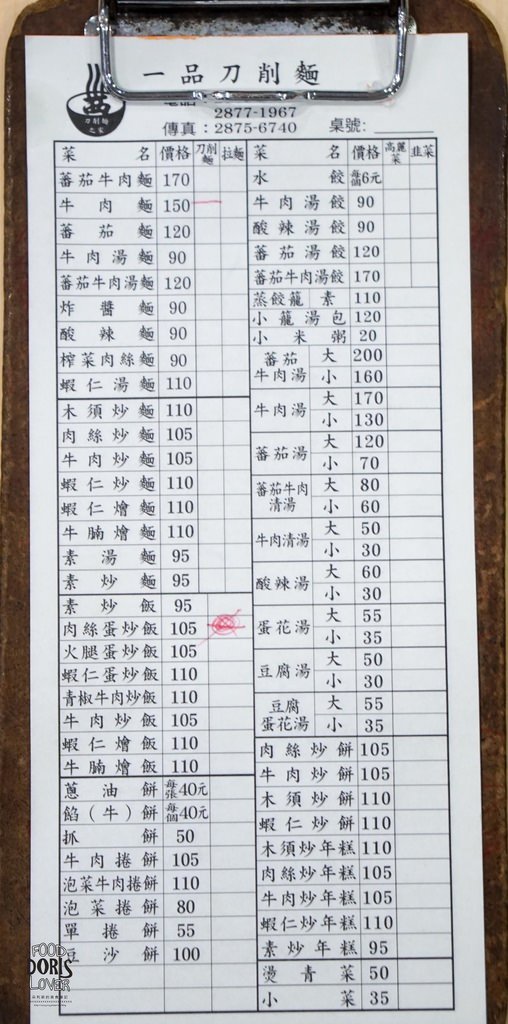 一品刀削麵
刀削麵
之家
2877-1967
傳真：2875-6740 桌號:
菜名 價格 刀削麵 拉麵
蕃茄牛肉麵 170
牛肉麵 150
蕃茄麵 120
牛肉湯麵 90
蕃茄牛肉湯麵 120
炸醬麵 90
酸辣麵 90
榨菜肉絲麵 90
蝦仁湯麵 110
木須炒麵 110
肉絲炒麵 105
牛肉炒麵 105
蝦仁炒麵 110
蝦仁燴麵 110
牛腩燴麵 110
素湯麵 95
素炒麵 95
素炒飯 95
肉絲蛋炒飯 105
火腿蛋炒飯 105
蝦仁蛋炒飯 110
青椒牛肉炒飯 110
牛肉炒飯 105
蝦仁燴飯 110
牛腩燴飯 110
蔥油餅 每張40元
餡(牛)餅 每個40元
抓餅 50
牛肉捲餅 105
泡菜牛肉捲餅 110
泡菜捲餅 80
單捲餅 55
豆沙餅 100
菜名 價格 高麗菜 韭菜
水餃 每個6元
牛肉湯餃 90
酸辣湯餃 90
蕃茄湯餃 120
蕃茄牛肉湯餃 170
蒸餃籠素 110
小籠湯包 120
小米粥 20
蕃茄牛肉湯 大 200
小 160
牛肉湯 大 170
小 130
蕃茄湯 大 120
小 70
蕃茄牛肉清湯 大 80
小 60
牛肉清湯 大 50
小 30
酸辣湯 大 60
小 30
蛋花湯 大 55
小 35
豆腐湯 大 50
小 30
豆腐蛋花湯 大 55
小 35
肉絲炒餅 105
牛肉炒餅 105
木須炒餅 110
蝦仁炒餅 110
木須炒年糕 110
肉絲炒年糕 105
牛肉炒年糕 105
蝦仁炒年糕 110
素炒年糕 95
燙青菜 50
小菜 35
FOOD
DORIS
LOVER